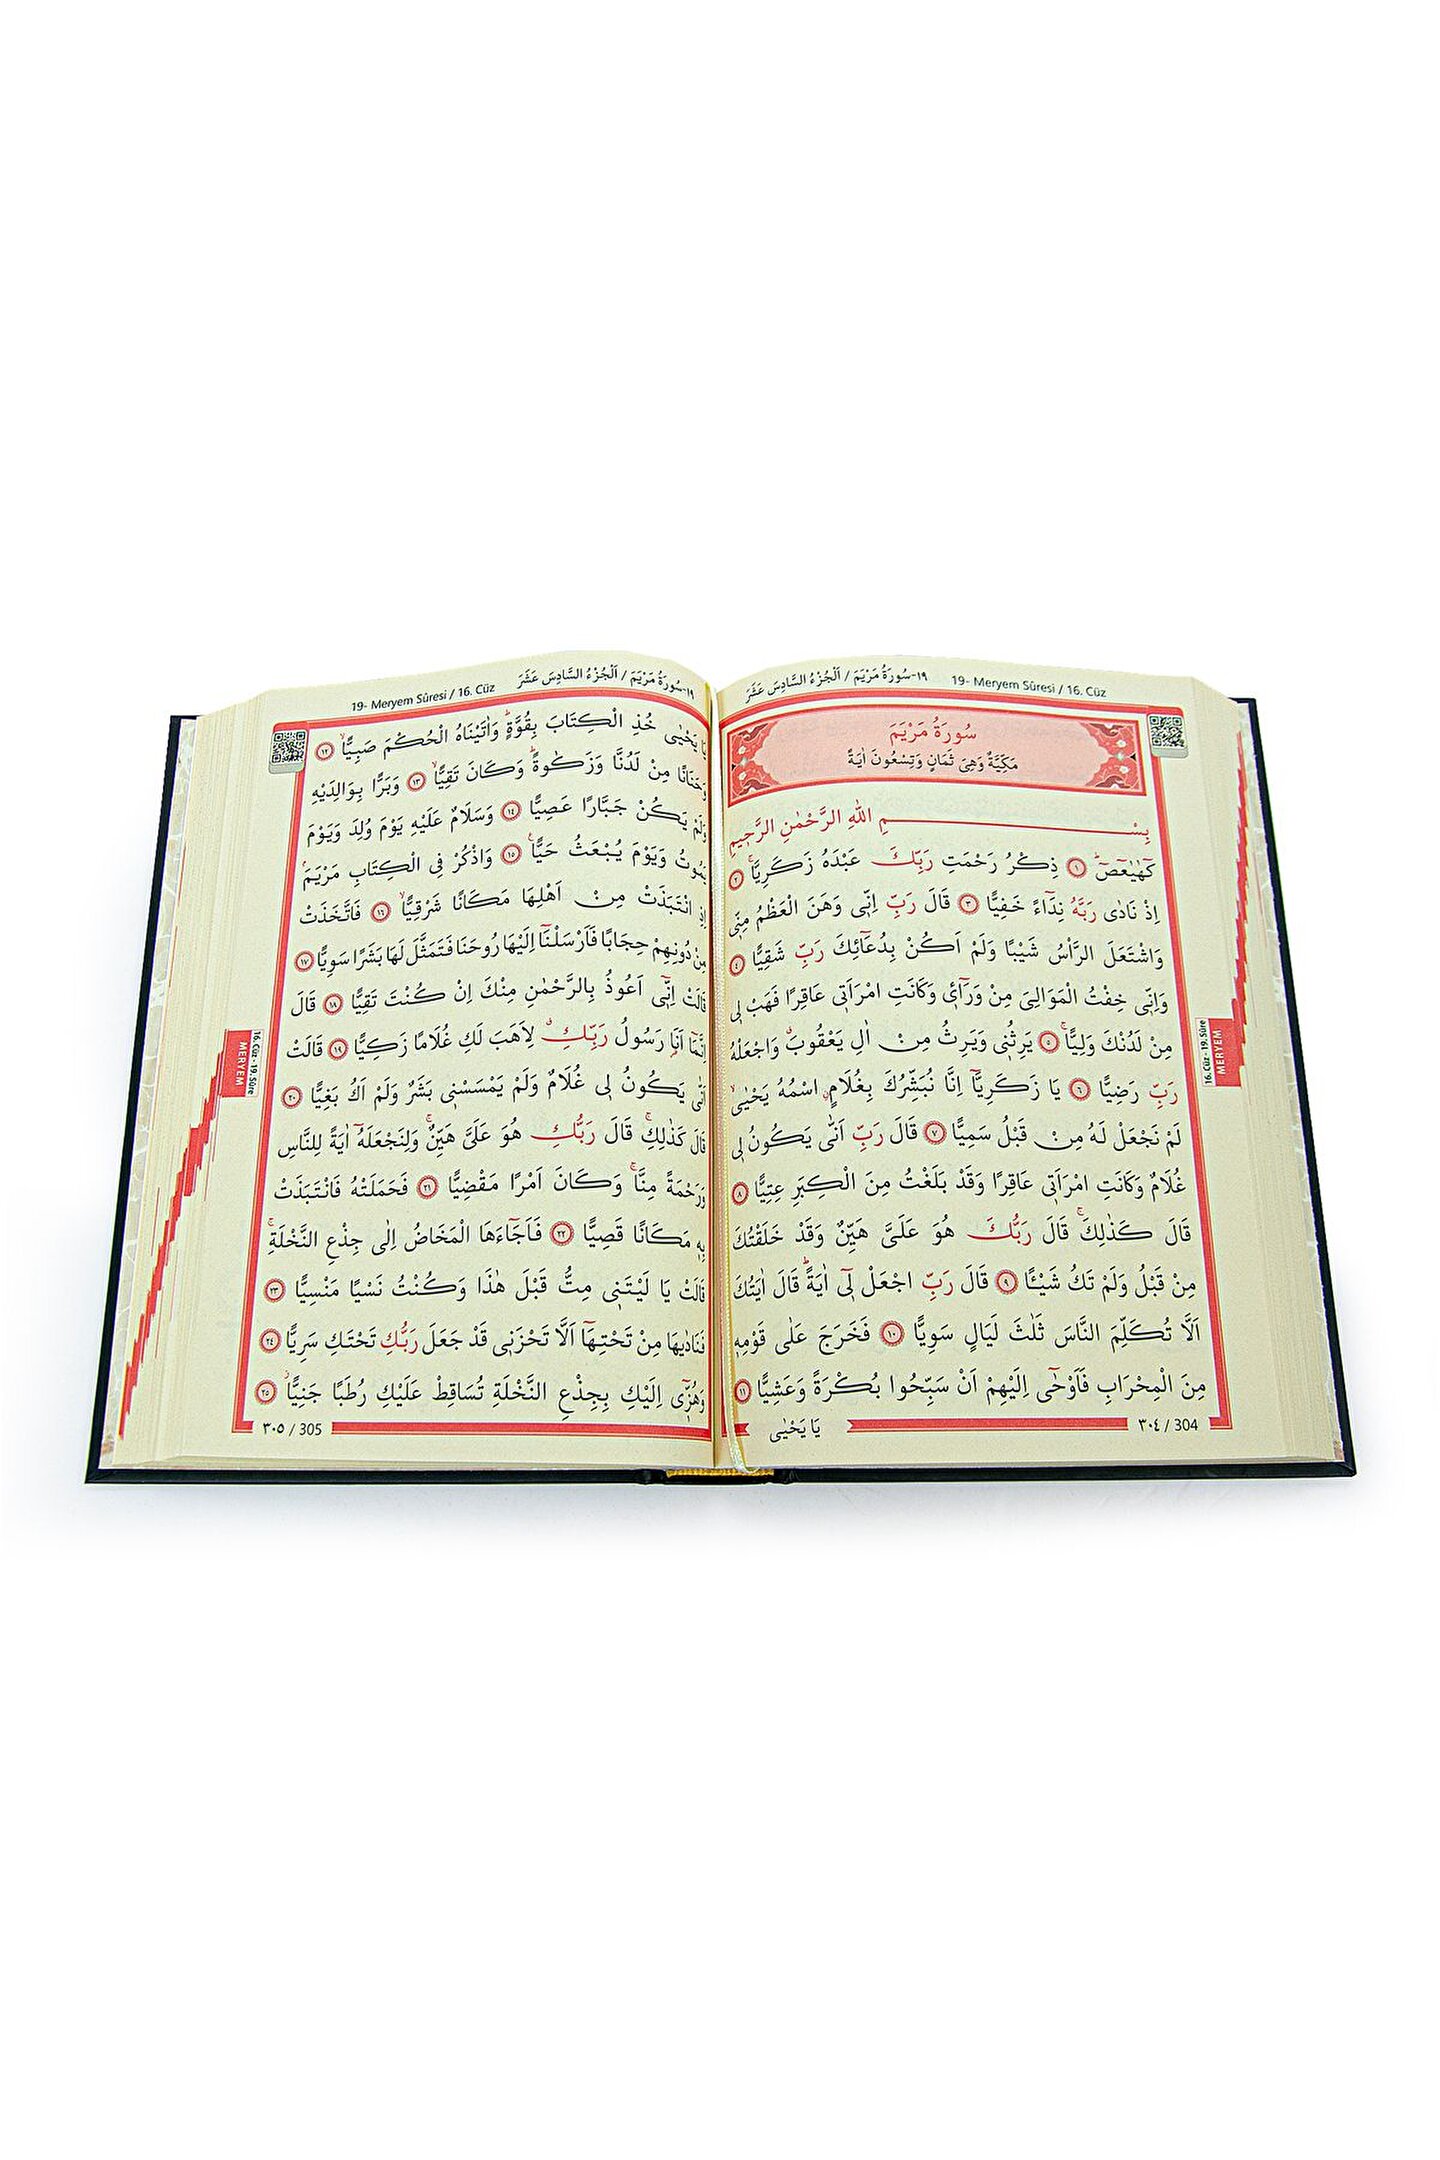 ١٩-سُورَةُ مَرْيَمَ / اَلْجُزْءُ السَّادِسَ عَشَرَ 19- Meryem Sûresi / 16. Cüz
سُورَةُ مَرْيَمَ
مَكِّيَّةٌ وَهِيَ ثَمَانٍ وَتِسْعُونَ اٰيَةً
بِسْمِ اللّٰهِ الرَّحْمٰنِ الرَّحٖيمِ
كٓهٰيٰعٓصٓ ۜ ١ ذِكْرُ رَحْمَتِ رَبِّكَ عَبْدَهُ زَكَرِيَّا ۚ ٢
اِذْ نَادٰى رَبَّهُ نِدَٓاءً خَفِيًّا ٣ قَالَ رَبِّ اِنّٖى وَهَنَ الْعَظْمُ مِنّٖى
وَاشْتَعَلَ الرَّأْسُ شَيْبًا وَلَمْ اَكُنْ بِدُعَٓائِكَ رَبِّ شَقِيًّا ٤
وَاِنّٖى خِفْتُ الْمَوَالِىَ مِنْ وَرَٓائٖ وَكَانَتِ امْرَاَتٖى عَاقِرًا فَهَبْ لٖى
مِنْ لَدُنْكَ وَلِيًّا ۙ ٥ يَرِثُنٖى وَيَرِثُ مِنْ اٰلِ يَعْقُوبَ ۗ وَاجْعَلْهُ
رَبِّ رَضِيًّا ٦ يَا زَكَرِيَّٓا اِنَّا نُبَشِّرُكَ بِغُلَامٍ ۨ اسْمُهُ يَحْيٰى ۙ
لَمْ نَجْعَلْ لَهُ مِنْ قَبْلُ سَمِيًّا ٧ قَالَ رَبِّ اَنّٰى يَكُونُ لٖى
غُلَامٌ وَكَانَتِ امْرَاَتٖى عَاقِرًا وَقَدْ بَلَغْتُ مِنَ الْكِبَرِ عِتِيًّا ٨
قَالَ كَذٰلِكَ ۚ قَالَ رَبُّكَ هُوَ عَلَىَّ هَيِّنٌ وَقَدْ خَلَقْتُكَ
مِنْ قَبْلُ وَلَمْ تَكُ شَيْـًٔا ٩ قَالَ رَبِّ اجْعَلْ لٖٓى اٰيَةً ۜ قَالَ اٰيَتُكَ
اَلَّا تُكَلِّمَ النَّاسَ ثَلٰثَ لَيَالٍ سَوِيًّا ١٠ فَخَرَجَ عَلٰى قَوْمِهٖ
مِنَ الْمِحْرَابِ فَاَوْحٰٓى اِلَيْهِمْ اَنْ سَبِّحُوا بُكْرَةً وَعَشِيًّا ١١
يَا يَحْيٰى
٣٠٤ / 304
16. Cüz - 19. Sûre
MERYEM
19- Meryem Sûresi / 16. Cüz ١٩-سُورَةُ مَرْيَمَ / اَلْجُزْءُ السَّادِسَ عَشَرَ
يَا يَحْيٰى خُذِ الْكِتَابَ بِقُوَّةٍ ۜ وَاٰتَيْنَاهُ الْحُكْمَ صَبِيًّا ۙ ١٢
وَحَنَانًا مِنْ لَدُنَّا وَزَكٰوةً ۜ وَكَانَ تَقِيًّا ۙ ١٣ وَبَرًّا بِوَالِدَيْهِ
وَلَمْ يَكُنْ جَبَّارًا عَصِيًّا ١٤ وَسَلَامٌ عَلَيْهِ يَوْمَ وُلِدَ وَيَوْمَ
يَمُوتُ وَيَوْمَ يُبْعَثُ حَيًّا ۟ ١٥ وَاذْكُرْ فِى الْكِتَابِ مَرْيَمَ ۢ
اِذِ انْتَبَذَتْ مِنْ اَهْلِهَا مَكَانًا شَرْقِيًّا ۙ ١٦ فَاتَّخَذَتْ
مِنْ دُونِهِمْ حِجَابًا فَاَرْسَلْنَٓا اِلَيْهَا رُوحَنَا فَتَمَثَّلَ لَهَا بَشَرًا سَوِيًّا ١٧
قَالَتْ اِنّٖٓى اَعُوذُ بِالرَّحْمٰنِ مِنْكَ اِنْ كُنْتَ تَقِيًّا ١٨ قَالَ
اِنَّمَٓا اَنَا رَسُولُ رَبِّكِ ۗ لِاَهَبَ لَكِ غُلَامًا زَكِيًّا ١٩ قَالَتْ
اَنّٰى يَكُونُ لٖى غُلَامٌ وَلَمْ يَمْسَسْنٖى بَشَرٌ وَلَمْ اَكُ بَغِيًّا ٢٠
قَالَ كَذٰلِكِ ۚ قَالَ رَبُّكِ هُوَ عَلَىَّ هَيِّنٌ ۚ وَلِنَجْعَلَهُٓ اٰيَةً لِلنَّاسِ
وَرَحْمَةً مِنَّا ۚ وَكَانَ اَمْرًا مَقْضِيًّا ٢١ فَحَمَلَتْهُ فَانْتَبَذَتْ
بِهٖ مَكَانًا قَصِيًّا ٢٢ فَاَجَٓاءَهَا الْمَخَاضُ اِلٰى جِذْعِ النَّخْلَةِ ۚ
قَالَتْ يَا لَيْتَنٖى مِتُّ قَبْلَ هٰذَا وَكُنْتُ نَسْيًا مَنْسِيًّا ٢٣
فَنَادٰيهَا مِنْ تَحْتِهَٓا اَلَّا تَحْزَنٖى قَدْ جَعَلَ رَبُّكِ تَحْتَكِ سَرِيًّا ٢٤
وَهُزّٖٓى اِلَيْكِ بِجِذْعِ النَّخْلَةِ تُسَاقِطْ عَلَيْكِ رُطَبًا جَنِيًّا ۘ ٢٥
٣٠٥ / 305
16. Cüz - 19. Sûre
MERYEM